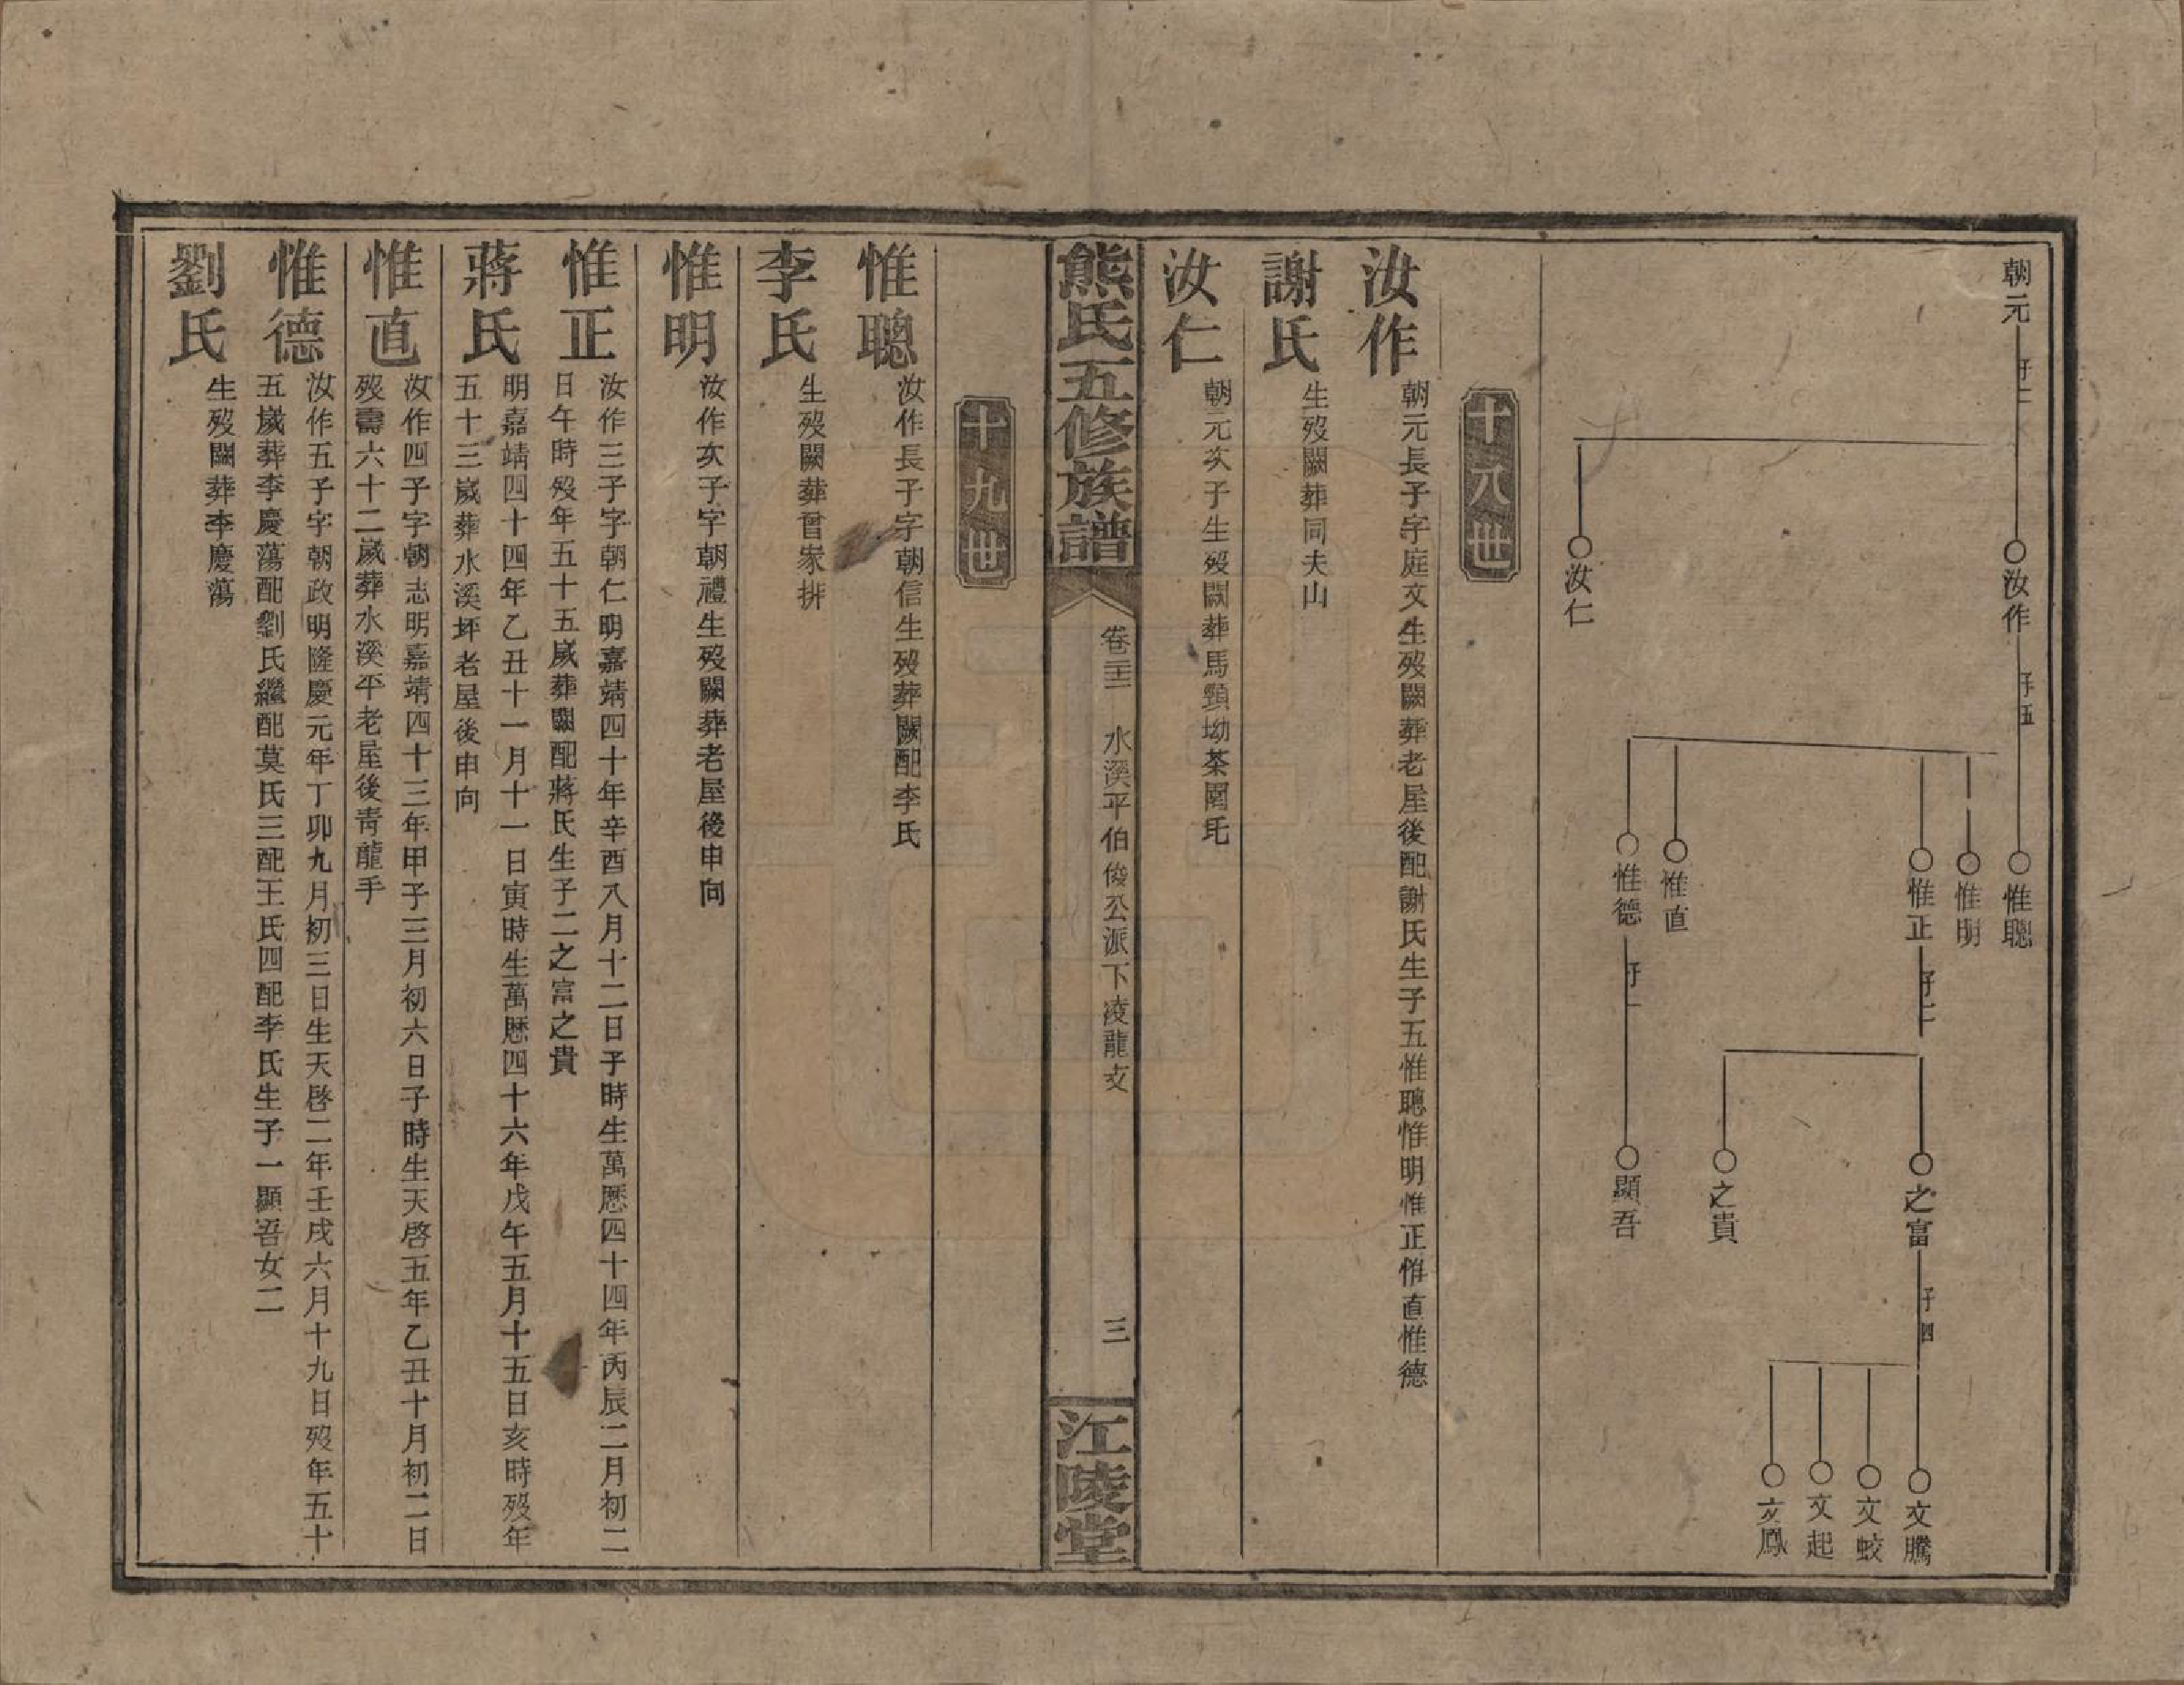 朝元
子二
汝作
汝仁
子五
惟聰
惟明
惟正
惟直
惟德
子二
子一
之富
之貴
顯吾
子四
文騰
文蛟
文起
文鳳
十八世
汝作
朝元長子字庭文生歿闕葬老屋後配謝氏生子五惟聰惟明惟正惟直惟德
謝氏
生歿闕葬同夫山
汝仁
朝元次子生歿闕葬馬頸坳茶園屹
熊氏五修族譜
卷三 水溪平伯俊公派下凌龍支
三
江陵堂
十九世
惟聰
汝作長子字朝信生歿葬闕配李氏
李氏
生歿闕葬曾家排
惟明
汝作次子字朝禮生歿闕葬老屋後申向
惟正
汝作三子字朝仁明嘉靖四十年辛酉八月十二日子時生萬歷四十四年丙辰二月初二
日午時歿年五十五歲葬闕配蔣氏生子二之富之貴
蔣氏
明嘉靖四十四年乙丑十一月十一日寅時生萬歷四十六年戊午五月十五日亥時歿年
五十三歲葬水溪坪老屋後申向
惟直
汝作四子字朝志明嘉靖四十三年甲子三月初六日子時生天啓五年乙丑十月初二日
歿壽六十二歲葬水溪平老屋後青龍手
惟德
汝作五子字朝政明隆慶元年丁卯九月初三日生天啓二年壬戌六月十九日歿年五十
五歲葬李慶蕩配劉氏繼配莫氏三配王氏四配李氏生子一顯吾女二
劉氏
生歿闕葬李慶蕩